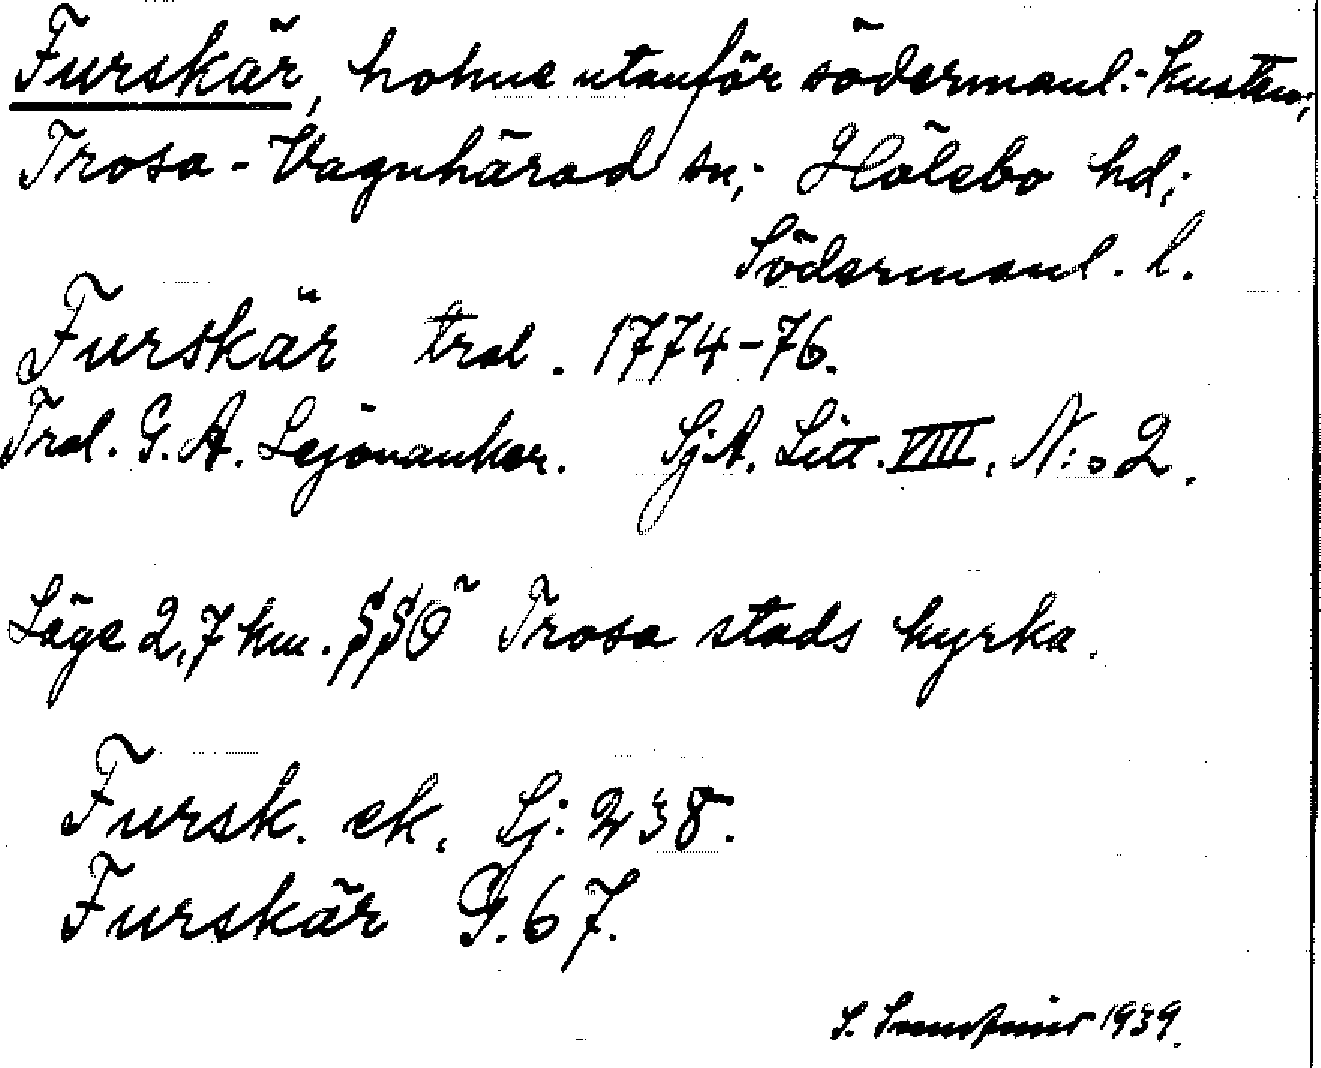 Furskär, holme utanför södermanl. kusten;
Trosa-Vagnhärad sn; Hölebo hd;
Södermanl. l.
Furskär trol. 1774-76.
Trol. G. A. Lejonanker. Sj.A. Litt. VIIII. N:o 2.
Läge 2,7 km. SSÖ Trosa stads kyrka.
Fursk. ek. Sj: 238.
Furskär G. 67.
S. 1939.